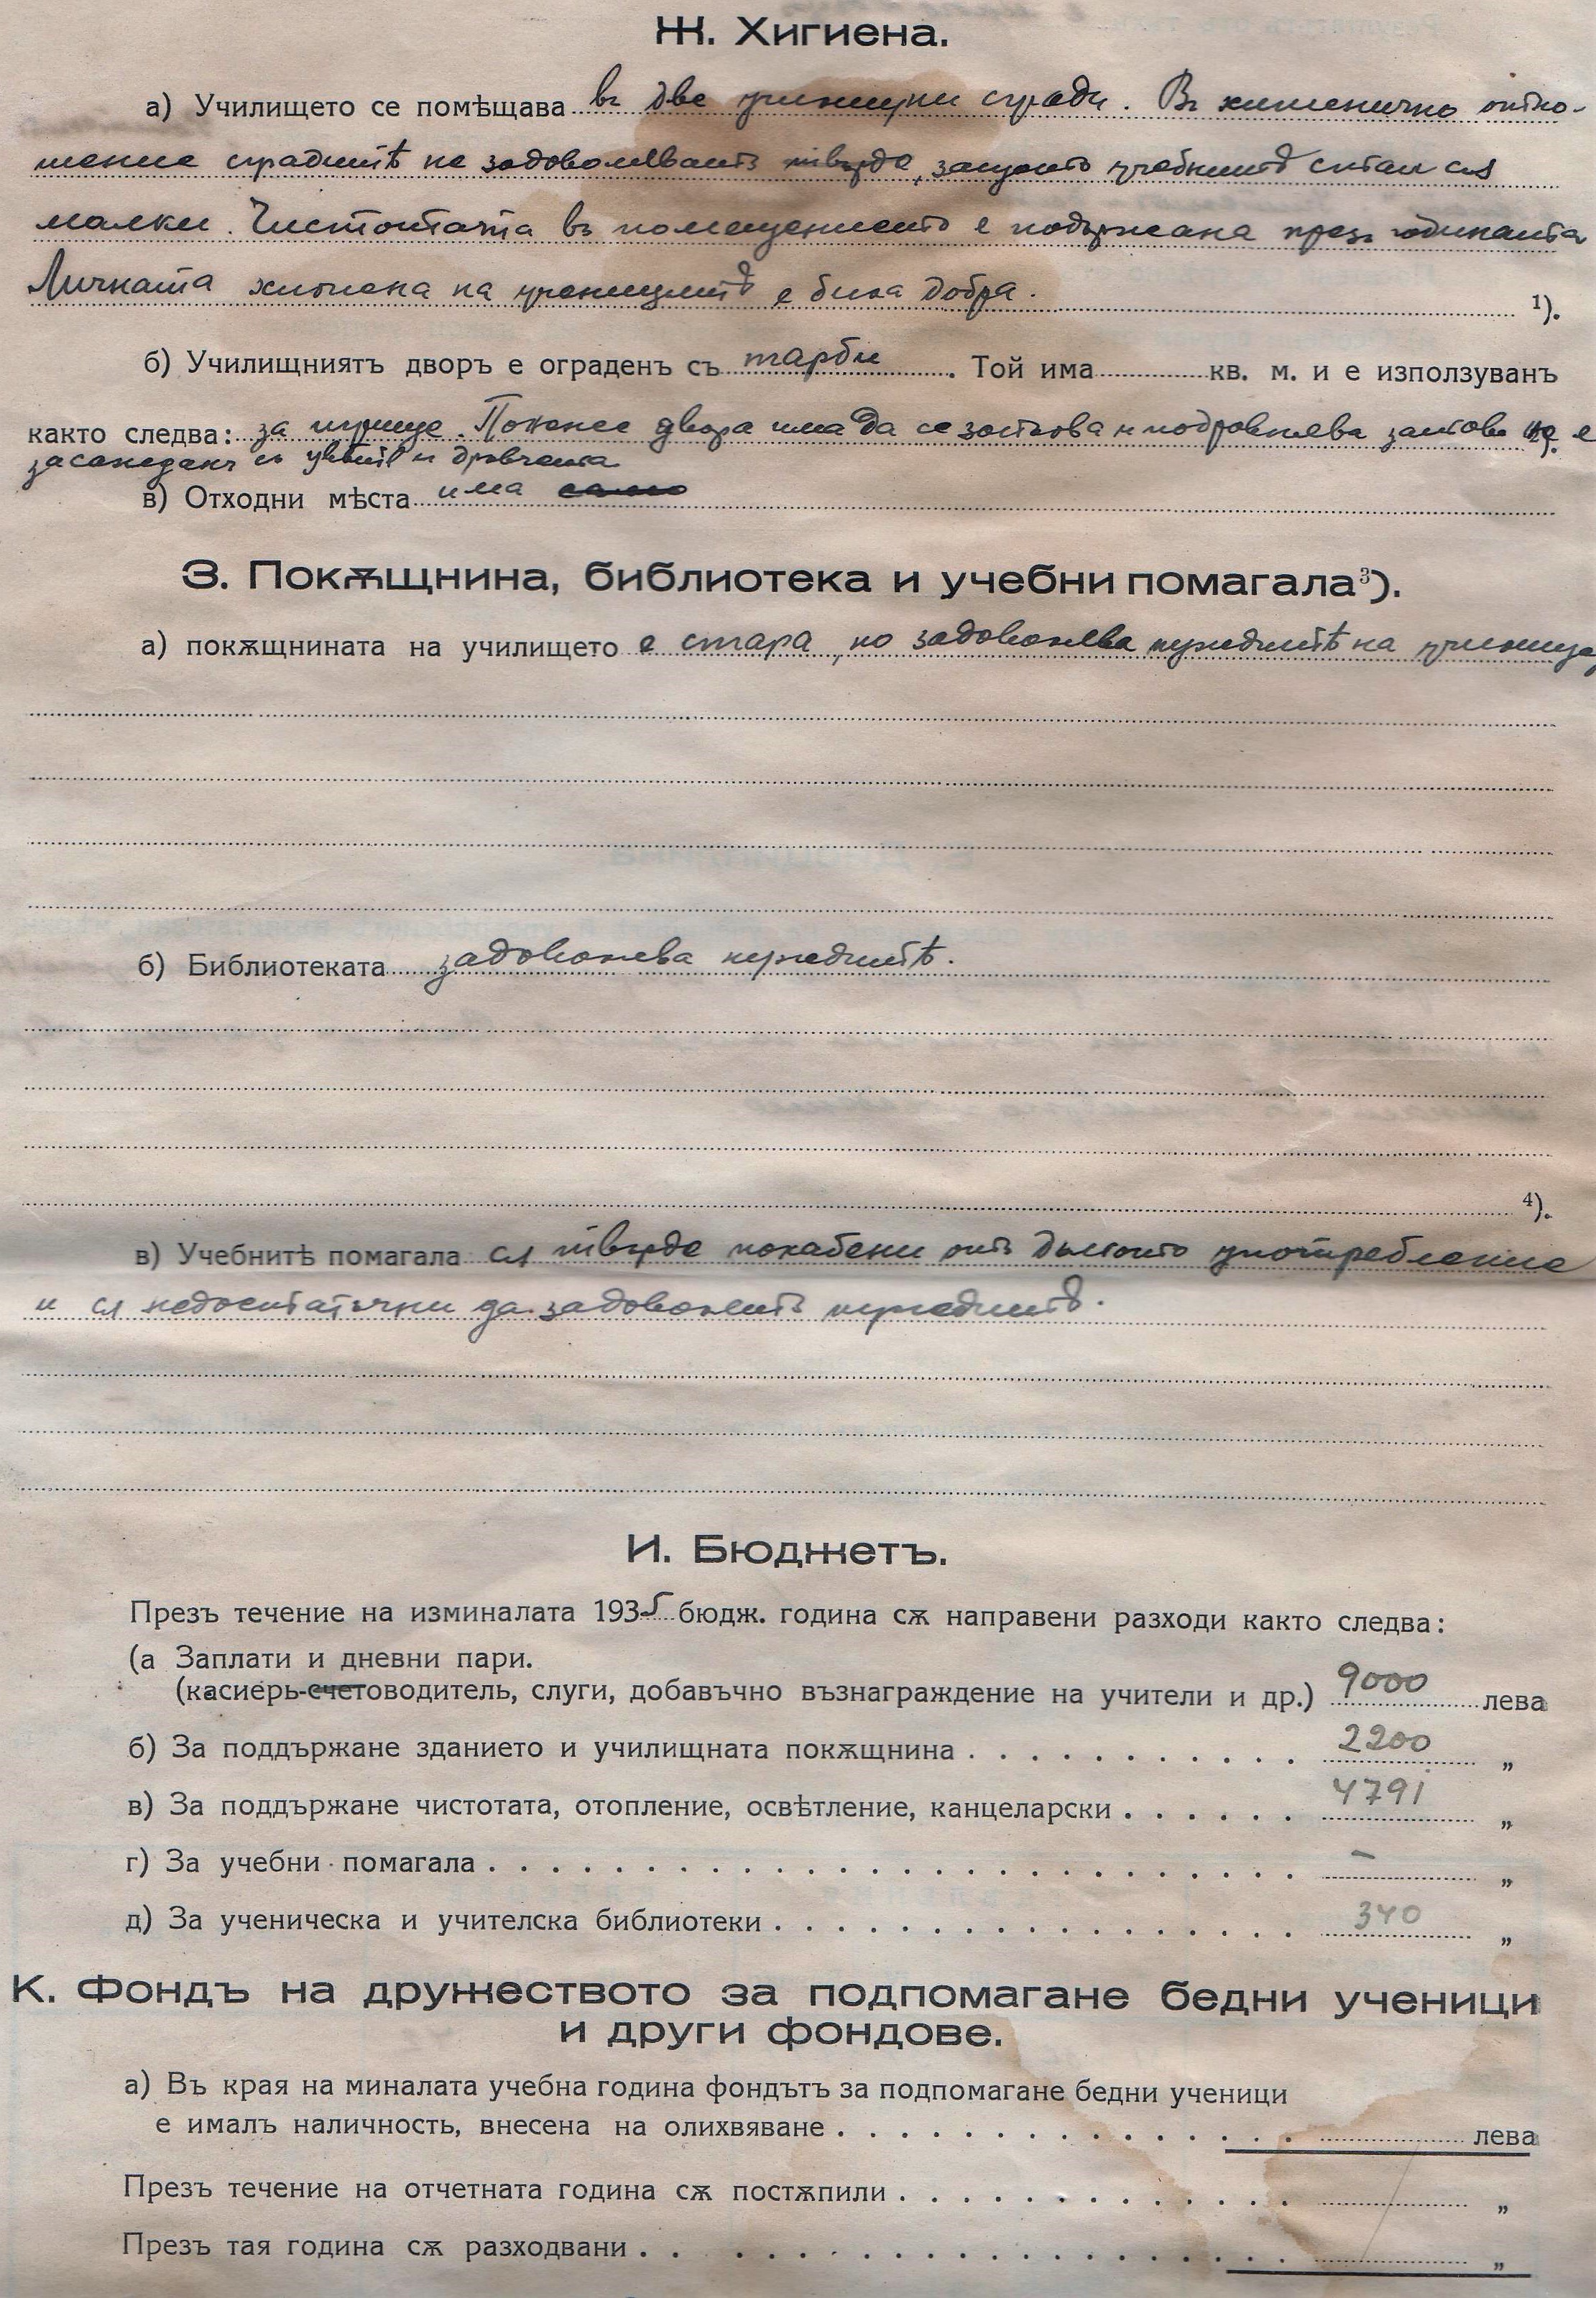 Ж. Хигиена.
а) Училището се помѣщава въ две училищни сгради. Въ хигиенично отно-
шение сградитѣ не задоволяватъ твърде, защото учебнитѣ стаи сѫ
малки. Чистотата въ помещението е подържана презъ годината
Личната хигиена на ученицитѣ е била добра. ¹).
б) Училищниятъ дворъ е ограденъ съ тарби. Той има кв. м. и е използуванъ
както следва: за игрище. Понеже двора има да се застоява и подравнява затова не е ²).
засажданъ съ цвѣтя и дръвчета
в) Отходни мѣста има
З. Покѫщнина, библиотека и учебни помагала³).
а) покѫщнината на училището е стара, но задоволява нуждитѣ на училище
б) Библиотеката задоволява нуждитѣ.
⁴).
в) Учебнитѣ помагала сѫ твърде похабени отъ дългото употребление
и сѫ недостатъчни да задоволятъ нуждитѣ.
И. Бюджетъ.
Презъ течение на изминалата 1935 бюдж. година сѫ направени разходи както следва:
(а Заплати и дневни пари.
(касиеръ-счетоводитель, слуги, добавъчно възнаграждение на учители и др.) 9000 лева
б) За поддържане зданието и училищната покѫщнина . . . . . . . . . . . 2200 „
в) За поддържане чистотата, отопление, освѣтление, канцеларски . . . . . . 4791 „
г) За учебни помагала . . . . . . . . . . . . . . . . . . . . . – „
д) За ученическа и учителска библиотеки . . . . . . . . . . . . . . . . 340 „
К. Фондъ на дружеството за подпомагане бедни ученици
и други фондове.
а) Въ края на миналата учебна година фондътъ за подпомагане бедни ученици
е ималъ наличность, внесена на олихвяване . . . . . . . . . . . . . . . лева
Презъ течение на отчетната година сѫ постѫпили . . . . . . . . . . . . . „
Презъ тая година сѫ разходвани . . . . . . . . . . . . . . . . . . . „